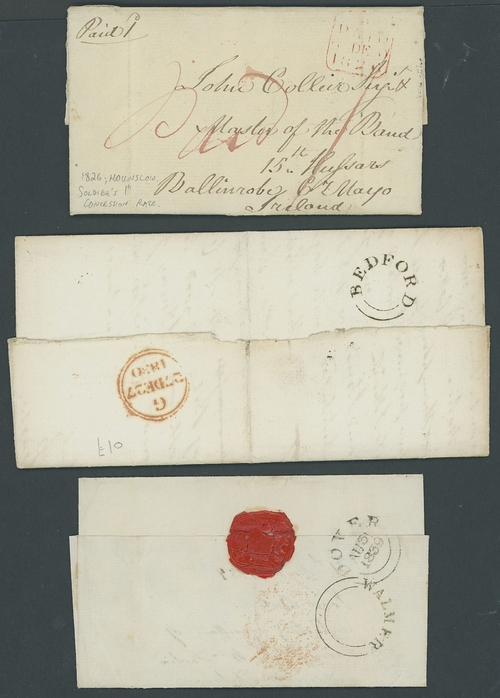 Paid 1
PAID
DE
182
John Collier Serjt
Master of the Band
15th Hussars
Ballinrobe Co. Mayo
Ireland
1826, HOUNSLOW,
SOLDIER'S 1d
CONCESSION RATE.
BEDFORD
G
27DE27
1830
£10
DOVER
AU
1839
WALMER